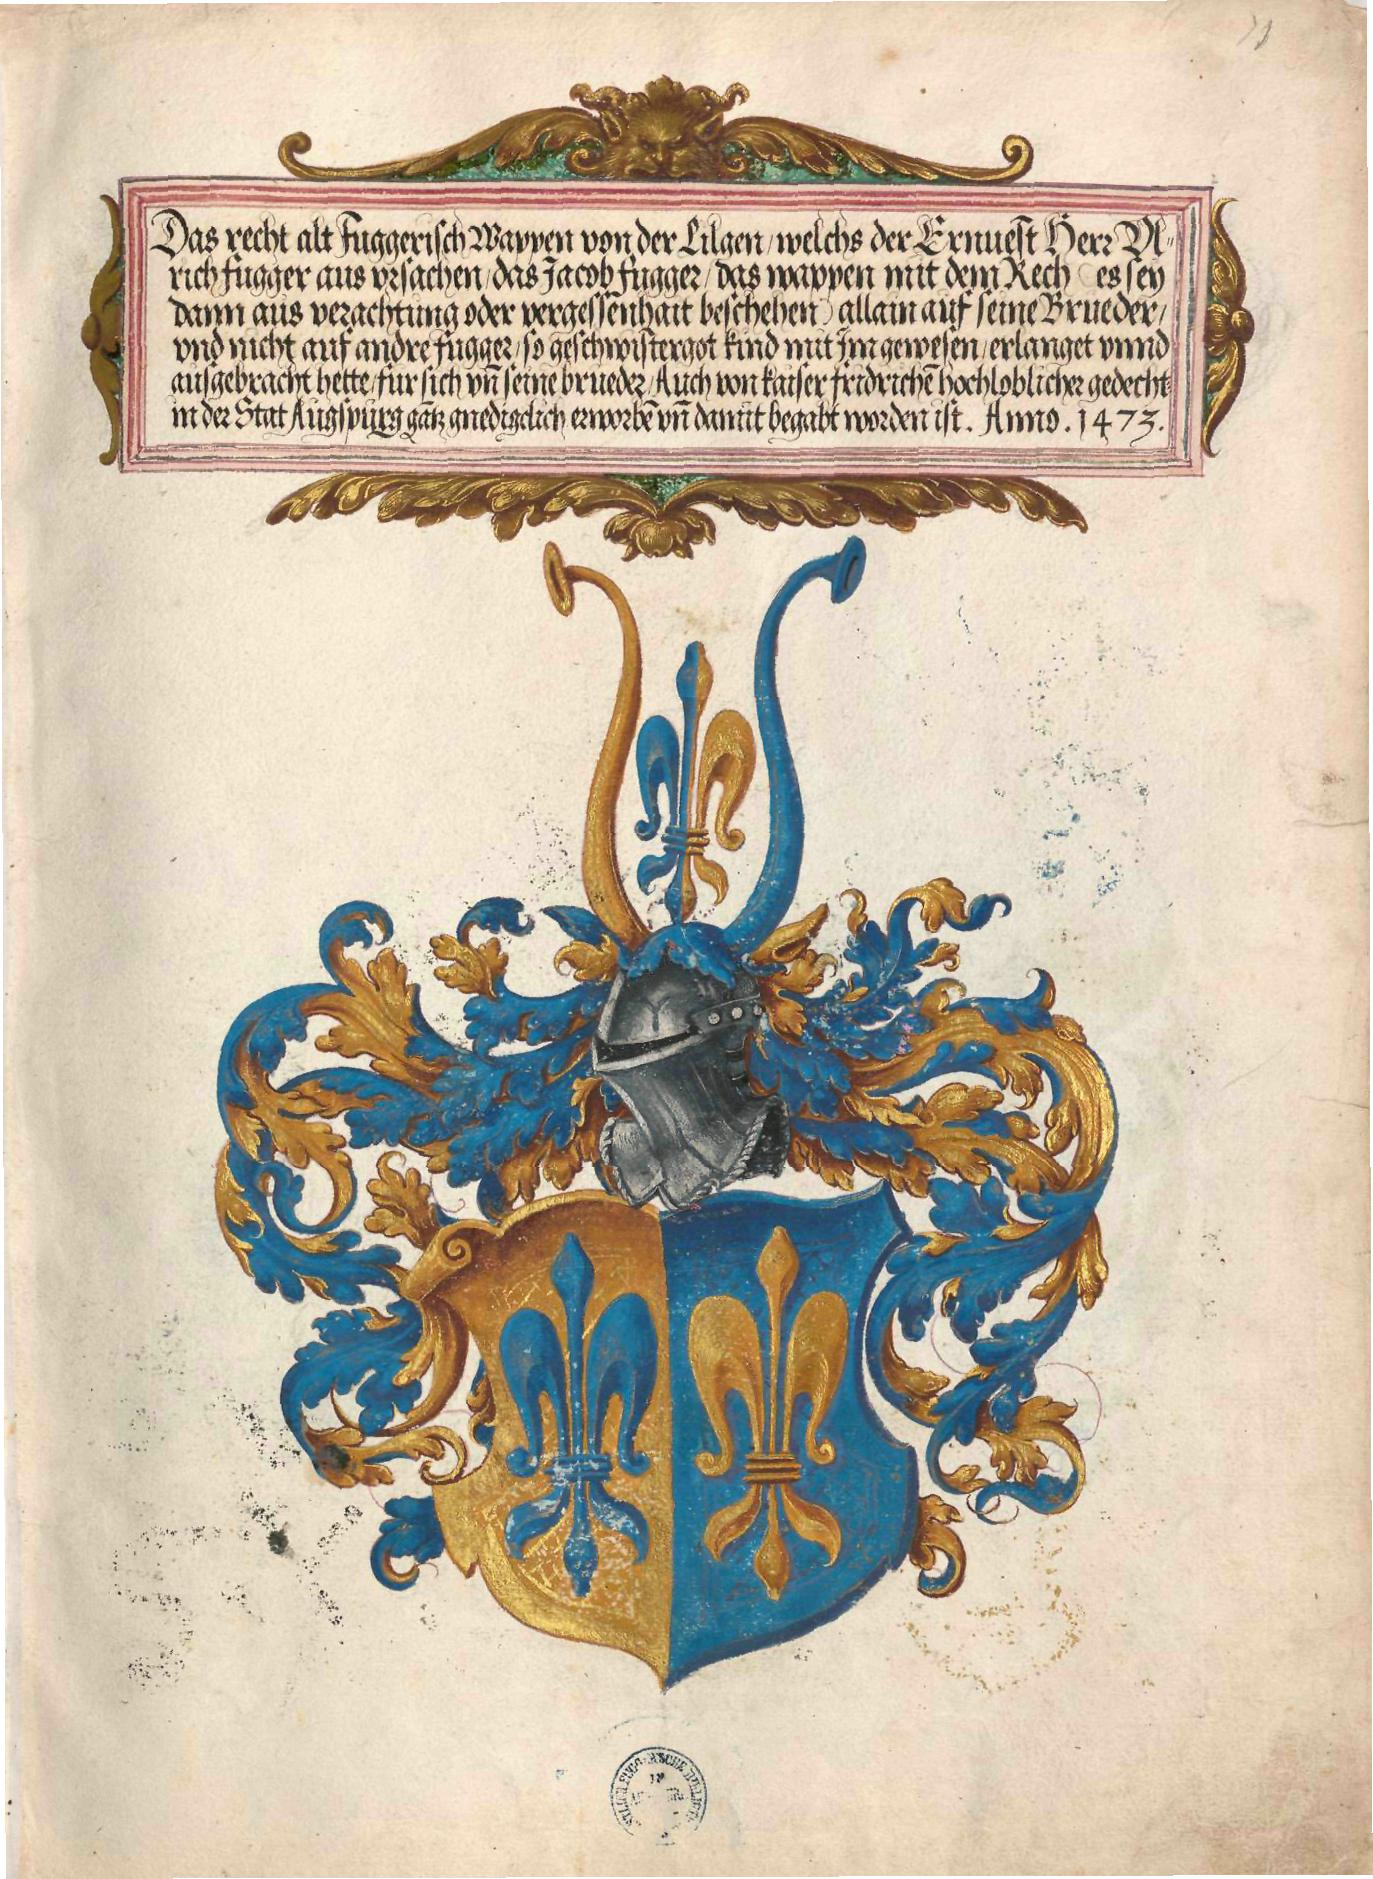 Das recht alt Fuggerisch Wappen von der Lilgen / welchs der Ernuest Herr Vl⸗
rich Fugger aus vrsachen / das Jacob Fugger / das wappen mit dem Rech es sey
dann aus verachtung oder vergessenhait beschehen) allain auf seine Brueder /
vnd nicht auf andre Fugger / so geschwistergot kind mit Jm gewesen / erlanget vnnd
ausgebracht hette / fur sich vn̄ seine brueder / Auch von kaiser fridrichē hochloblicher gedecht⸗
in der Stat Augspurg gātz gnedigclich erworbē vn̄ damit begabt worden ist. Anno. 1473.